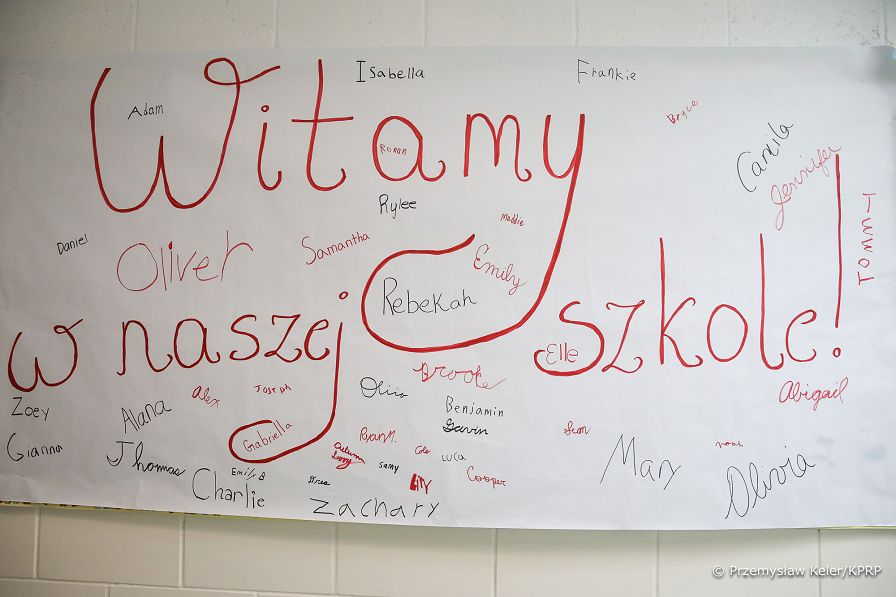 Isabella
Frankie
Adam
Bryce
Witamy
Roman
Camila
Jennifer
Rylee
Tommy
Maddie
Daniel
Oliver
Samantha
Emily
Rebekah
w naszej szkole!
Elle
Brooke
Olivia
Abigail
Alex
Joseph
Zoey
Alana
Benjamin
Gavin
Gabriella
Ryan M.
Sean
Gianna
Thomas
Cole
Luca
Noah
Mary
Samy
Emily B
Lily
Cooper
Charlie
Olivia
Zachary
© Przemysław Keler/KPRP